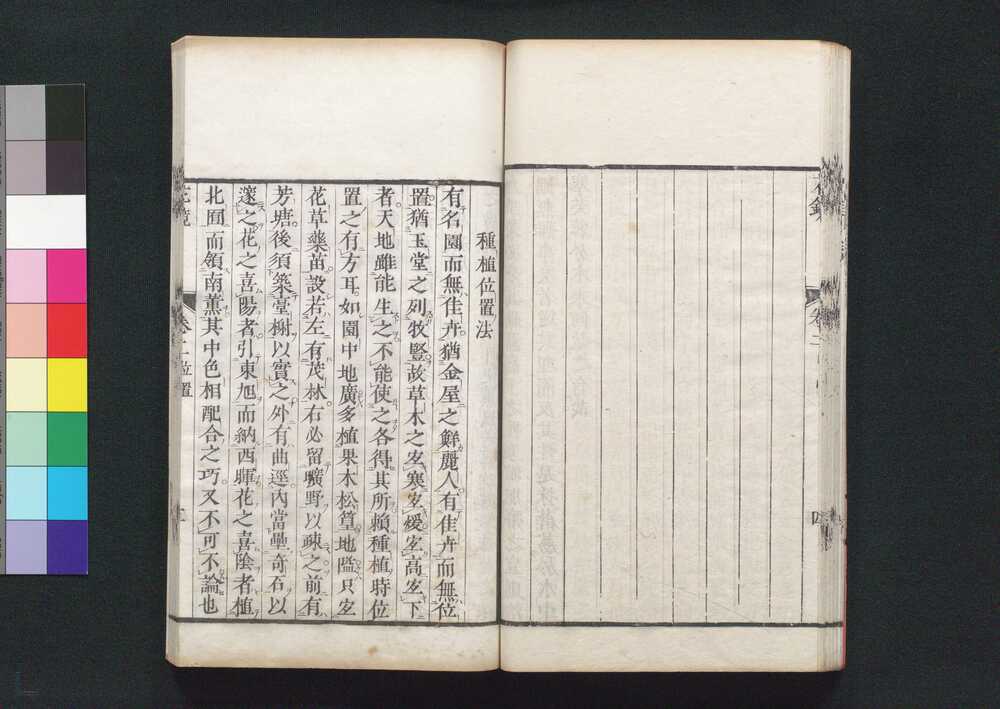 種植位置法
有名園而無佳卉猶金屋之鮮麗人有佳卉而無位
置猶玉堂之列牧豎故草木之宜寒宜煖宜高宜下
者天地雖能生之不能使之各得其所賴種植時位
置之有方耳如園中地廣多植果木松篁地隘只宜
花草藥苗設若左有茂林右必留曠野以疎之前有
芳塘後須築臺榭以實之外有曲逕內當壘奇石以
邃之花之喜陽者引東旭而納西暉花之喜陰者植
北囿而領南薰其中色相配合之巧又不可不論也
卷二位置
卷二
四